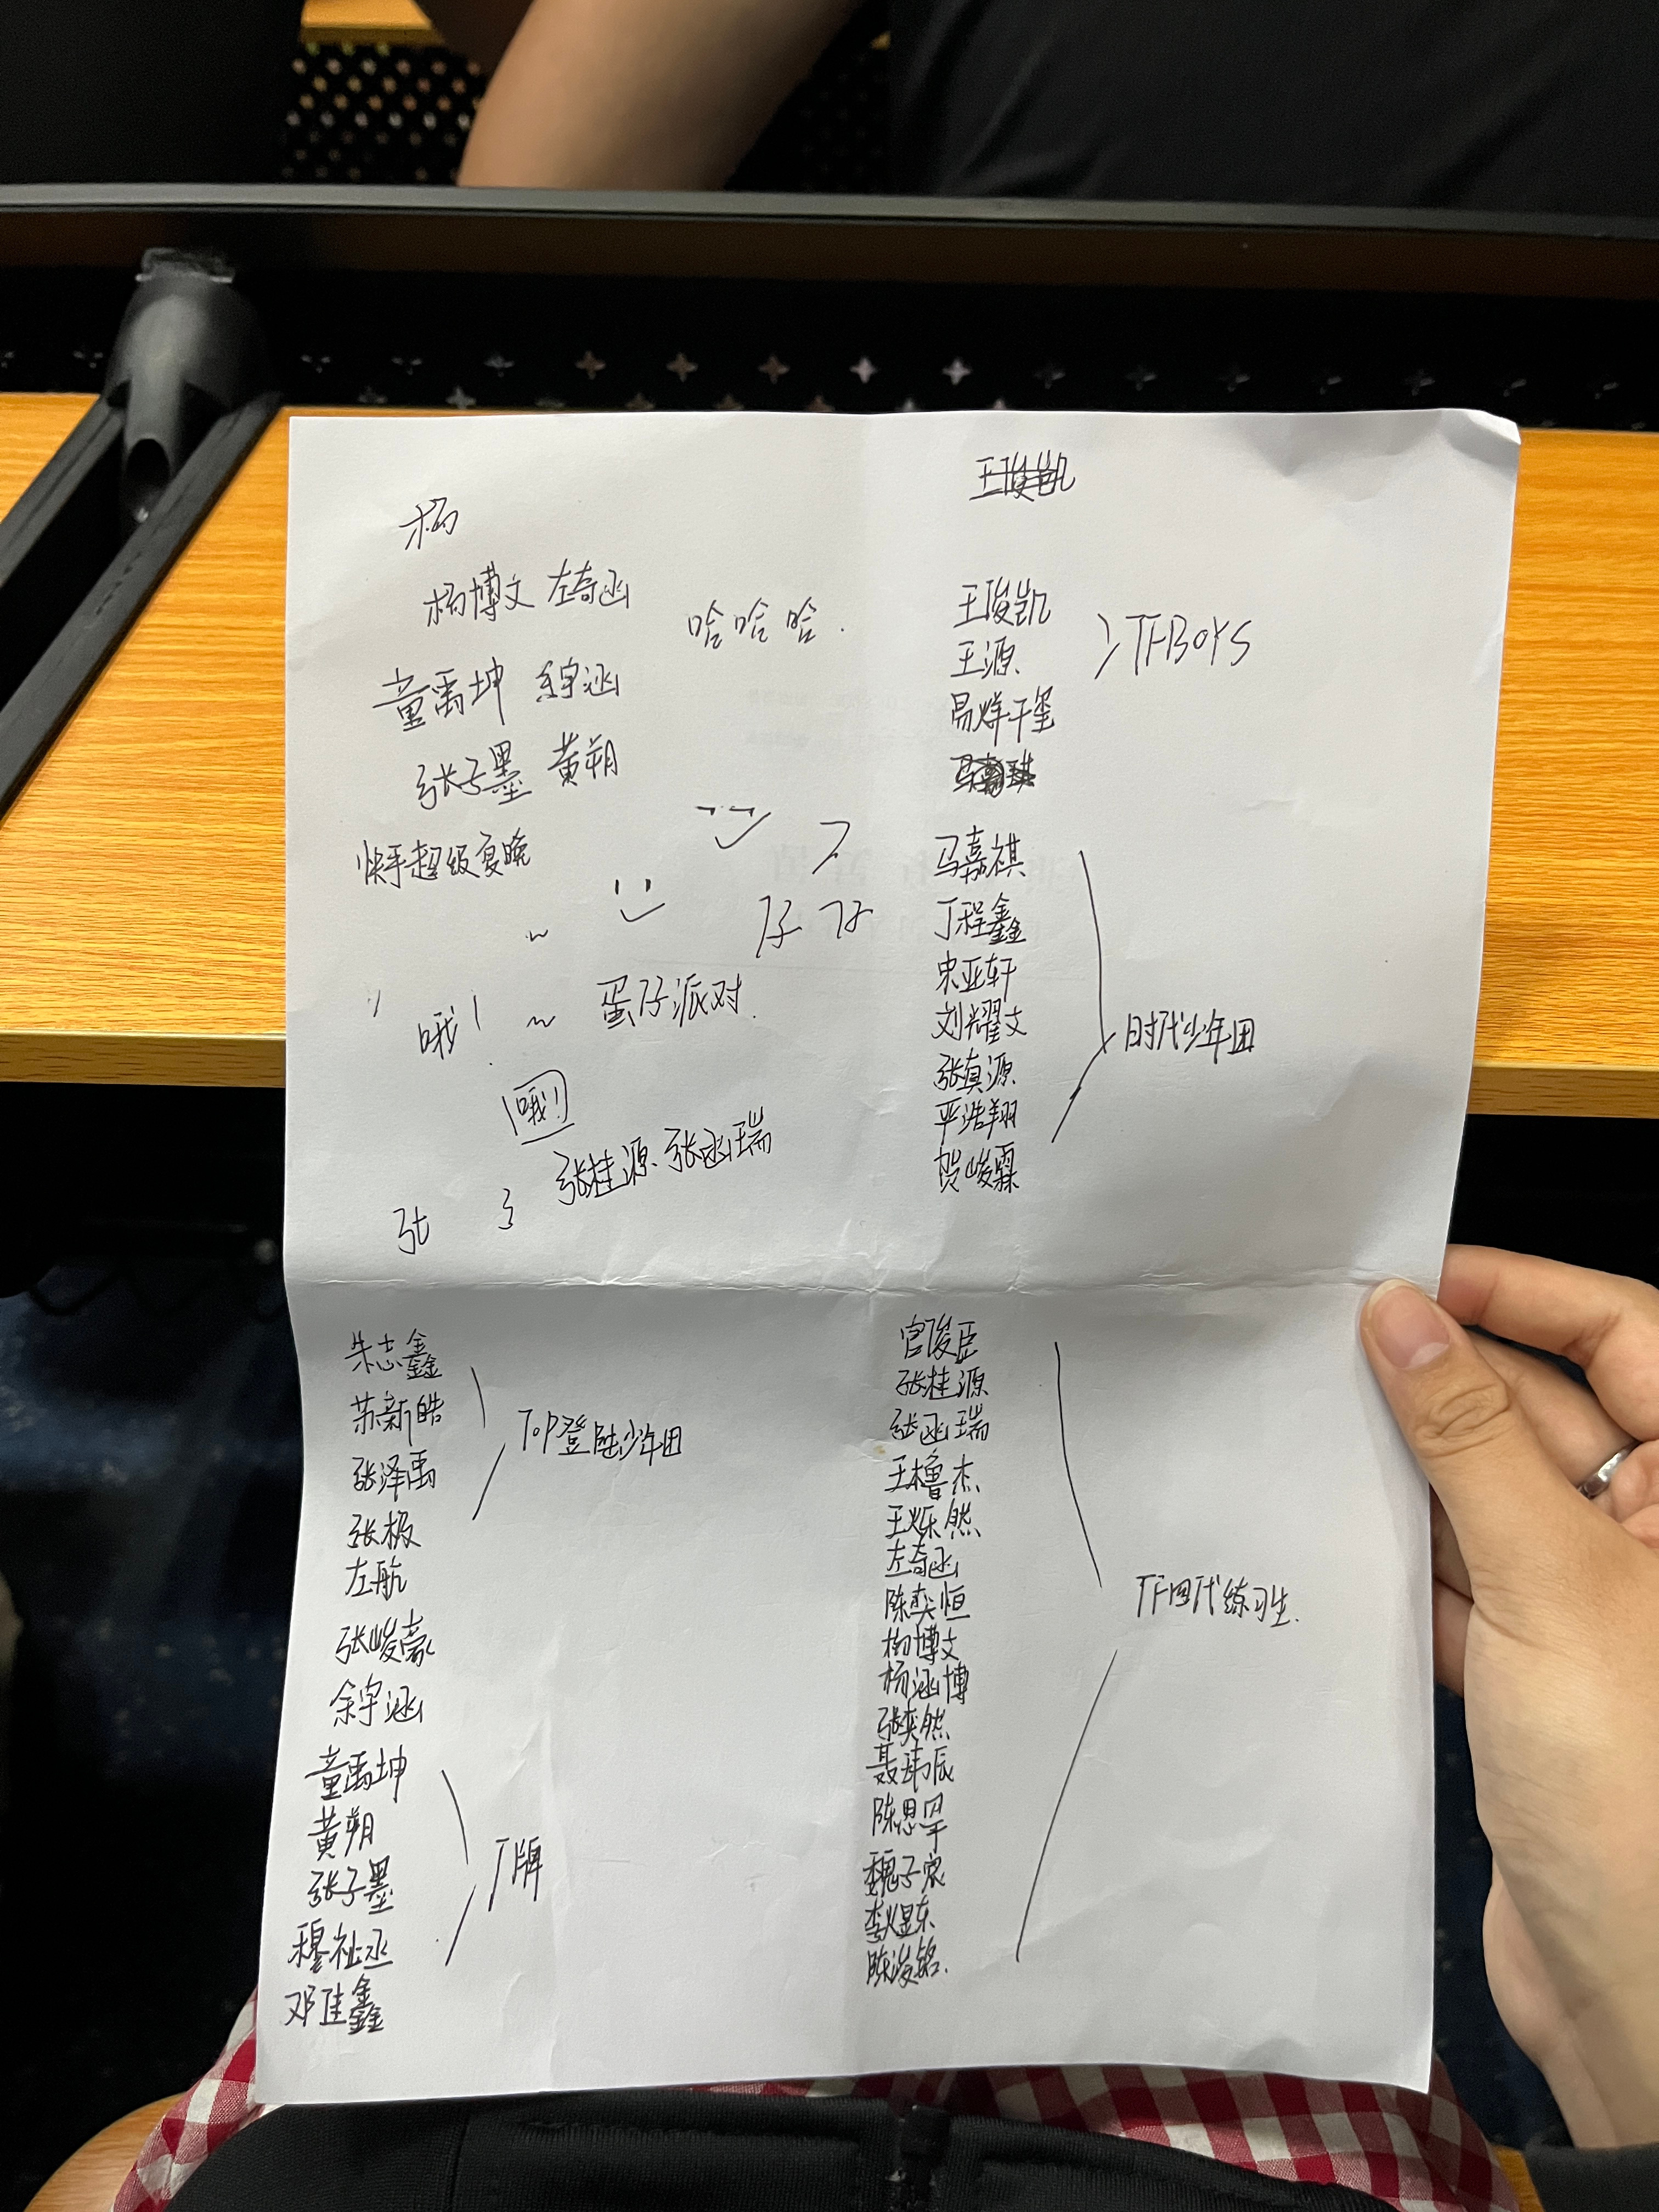 杨
杨博文 左奇函
哈哈哈.
童禹坤 余宇涵
张子墨 黄朔
快手超级夏晚
仔
蛋仔派对.
哦!
哦!
张桂源、张函瑞
张
王俊凯
王俊凯
王源、
易烊千玺
TFBOYS
马嘉祺
丁程鑫
宋亚轩
刘耀文
张真源
严浩翔
贺峻霖
时代少年团
朱志鑫
苏新皓
张泽禹
张极
左航
TOP登陆少年团
张峻豪
余宇涵
童禹坤
黄朔
张子墨
穆祉丞
邓佳鑫
丁牌
官俊臣
张桂源
张函瑞
王橹杰
王烁然
左奇函
陈奕恒
杨博文
杨涵博
张奕然
聂玮辰
陈思罕
魏子宸
李煜东
陈浚铭.
TF四代练习生.